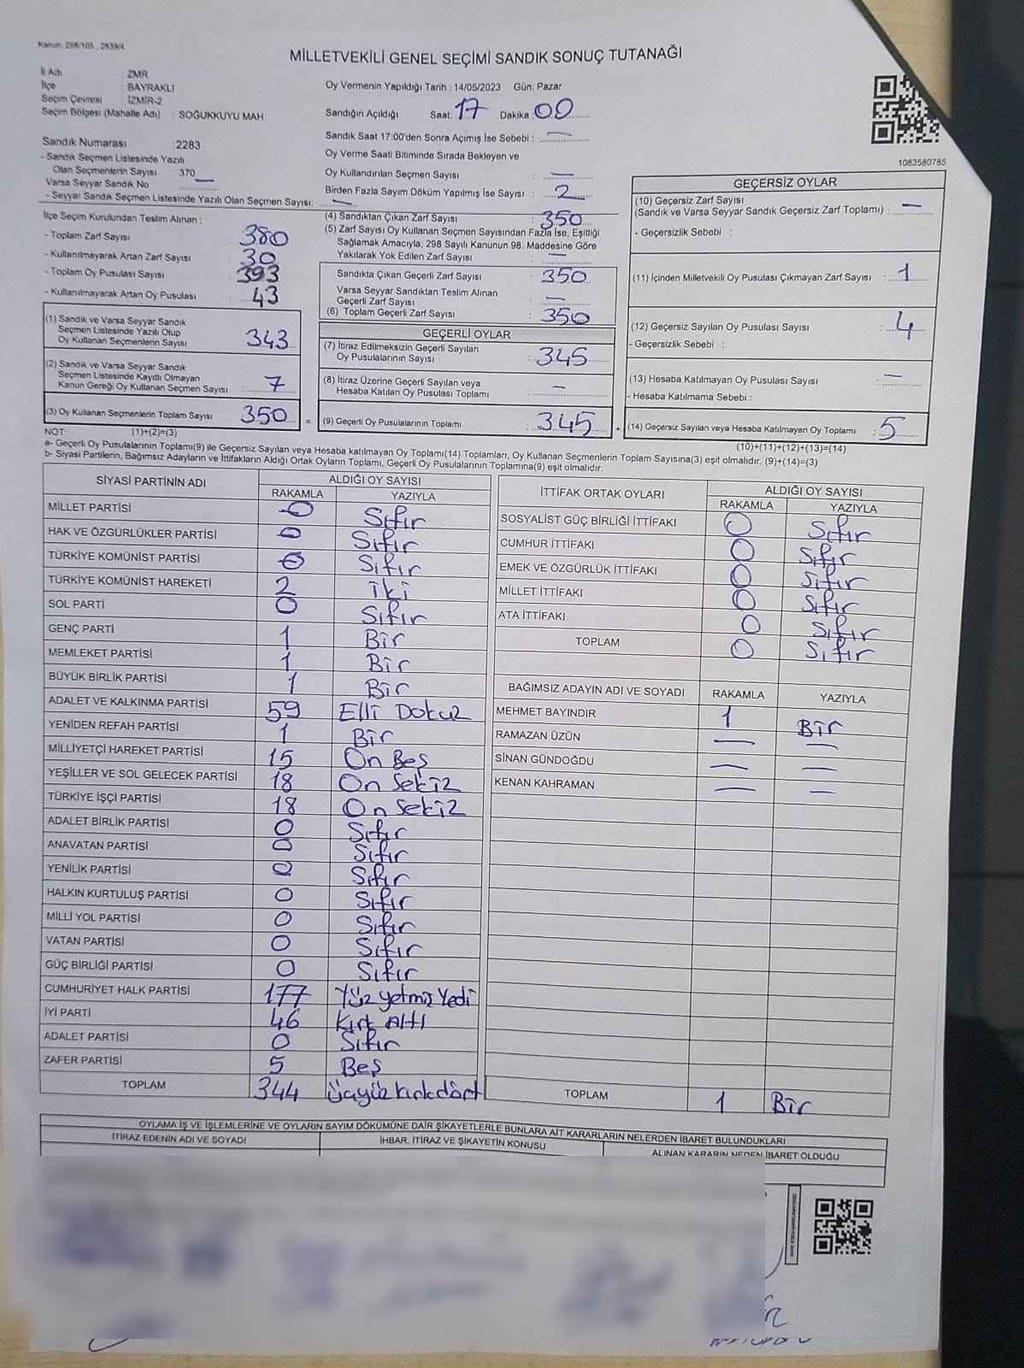 Kanun, 298/105 , 2839/4
MİLLETVEKİLİ GENEL SEÇİMİ SANDIK SONUÇ TUTANAĞI
İl Adı : ZMR
İlçe : BAYRAKLI
Seçim Çevresi : İZMİR-2
Seçim Bölgesi (Mahalle Adı) : SOĞUKKUYU MAH.
Oy Vermenin Yapıldığı Tarih : 14/05/2023 Gün: Pazar
Sandığın Açıldığı Saat: 17 Dakika 00
Sandık Saat 17:00'den Sonra Açımış İse Sebebi : —
Oy Verme Saati Bitiminde Sırada Bekleyen ve
Oy Kullandırılan Seçmen Sayısı : —
Birden Fazla Sayım Döküm Yapılmış İse Sayısı : 2
Sandık Numarası : 2283
- Sandık Seçmen Listesinde Yazılı
Olan Seçmenlerin Sayısı 370
Varsa Seyyar Sandık No —
- Seyyar Sandık Seçmen Listesinde Yazılı Olan Seçmen Sayısı: —
1083580785
İlçe Seçim Kurulundan Teslim Alınan :
- Toplam Zarf Sayısı : 380
- Kullanılmayarak Artan Zarf Sayısı : 30
- Toplam Oy Pusulası Sayısı : 393
- Kullanılmayarak Artan Oy Pusulası : 43
(1) Sandık ve Varsa Seyyar Sandık
Seçmen Listesinde Yazılı Olup
Oy Kullanan Seçmenlerin Sayısı : 343
(2) Sandık ve Varsa Seyyar Sandık
Seçmen Listesinde Kayıtlı Olmayan
Kanun Gereği Oy Kullanan Seçmen Sayısı : 7
(3) Oy Kullanan Seçmenlerin Toplam Sayısı : 350 =
(4) Sandıktan Çıkan Zarf Sayısı : 350
(5) Zarf Sayısı Oy Kullanan Seçmen Sayısından Fazla İse, Eşitliği
Sağlamak Amacıyla, 298 Sayılı Kanunun 98. Maddesine Göre
Yakılarak Yok Edilen Zarf Sayısı : —
Sandıkta Çıkan Geçerli Zarf Sayısı : 350
Varsa Seyyar Sandıktan Teslim Alınan
Geçerli Zarf Sayısı : —
(6) Toplam Geçerli Zarf Sayısı : 350
GEÇERLİ OYLAR
(7) İtiraz Edilmeksizin Geçerli Sayılan
Oy Pusulalarının Sayısı : 345
(8) İtiraz Üzerine Geçerli Sayılan veya
Hesaba Katılan Oy Pusulası Toplamı : —
(9) Geçerli Oy Pusulalarının Toplamı : 345 +
GEÇERSİZ OYLAR
(10) Geçersiz Zarf Sayısı
(Sandık ve Varsa Seyyar Sandık Geçersiz Zarf Toplamı) : —
- Geçersizlik Sebebi :
(11) İçinden Milletvekili Oy Pusulası Çıkmayan Zarf Sayısı : 1
(12) Geçersiz Sayılan Oy Pusulası Sayısı : 4
- Geçersizlik Sebebi :
(13) Hesaba Katılmayan Oy Pusulası Sayısı : —
- Hesaba Katılmama Sebebi :
(14) Geçersiz Sayılan veya Hesaba Katılmayan Oy Toplamı : 5
NOT: (1)+(2)=(3)
(10)+(11)+(12)+(13)=(14)
a- Geçerli Oy Pusulalarının Toplamı(9) ile Geçersiz Sayılan veya Hesaba Katılmayan Oy Toplamı(14) Toplamları, Oy Kullanan Seçmenlerin Toplam Sayısına(3) eşit olmalıdır. (9)+(14)=(3)
b- Siyasi Partilerin, Bağımsız Adayların ve İttifakların Aldığı Ortak Oyların Toplamı, Geçerli Oy Pusulalarının Toplamına(9) eşit olmalıdır.
SİYASİ PARTİNİN ADI ALDIĞI OY SAYISI
RAKAMLA YAZIYLA
MİLLET PARTİSİ 0 Sıfır
HAK VE ÖZGÜRLÜKLER PARTİSİ 0 Sıfır
TÜRKİYE KOMÜNİST PARTİSİ 0 Sıfır
TÜRKİYE KOMÜNİST HAREKETİ 2 iki
SOL PARTİ 0 Sıfır
GENÇ PARTİ 1 Bir
MEMLEKET PARTİSİ 1 Bir
BÜYÜK BİRLİK PARTİSİ 1 Bir
ADALET VE KALKINMA PARTİSİ 59 Elli Dokuz
YENİDEN REFAH PARTİSİ 1 Bir
MİLLİYETÇİ HAREKET PARTİSİ 15 On Beş
YEŞİLLER VE SOL GELECEK PARTİSİ 18 On Sekiz
TÜRKİYE İŞÇİ PARTİSİ 18 On Sekiz
ADALET BİRLİK PARTİSİ 0 Sıfır
ANAVATAN PARTİSİ 0 Sıfır
YENİLİK PARTİSİ 0 Sıfır
HALKIN KURTULUŞ PARTİSİ 0 Sıfır
MİLLİ YOL PARTİSİ 0 Sıfır
VATAN PARTİSİ 0 Sıfır
GÜÇ BİRLİĞİ PARTİSİ 0 Sıfır
CUMHURİYET HALK PARTİSİ 177 Yüz yetmiş Yedi
İYİ PARTİ 46 Kırk Altı
ADALET PARTİSİ 0 Sıfır
ZAFER PARTİSİ 5 Beş
TOPLAM 344 üçyüz kırkdört
İTTİFAK ORTAK OYLARI ALDIĞI OY SAYISI
RAKAMLA YAZIYLA
SOSYALİST GÜÇ BİRLİĞİ İTTİFAKI 0 Sıfır
CUMHUR İTTİFAKI 0 Sıfır
EMEK VE ÖZGÜRLÜK İTTİFAKI 0 Sıfır
MİLLET İTTİFAKI 0 Sıfır
ATA İTTİFAKI 0 Sıfır
TOPLAM 0 Sıfır
BAĞIMSIZ ADAYIN ADI VE SOYADI RAKAMLA YAZIYLA
MEHMET BAYINDIR 1 Bir
RAMAZAN ÜZÜN — —
SİNAN GÜNDOĞDU — —
KENAN KAHRAMAN — —
TOPLAM 1 Bir
OYLAMA İŞ VE İŞLEMLERİNE VE OYLARIN SAYIM DÖKÜMÜNE DAİR ŞİKAYETLERLE BUNLARA AİT KARARLARIN NELERDEN İBARET BULUNDUKLARI
İTİRAZ EDENİN ADI VE SOYADI İHBAR, İTİRAZ VE ŞİKAYETİN KONUSU ALINAN KARARIN NEDEN İBARET OLDUĞU